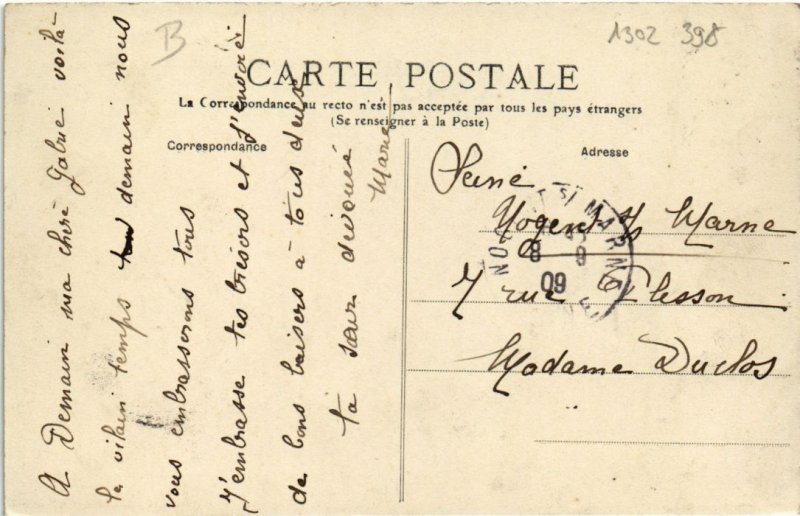 B
1302 398
CARTE POSTALE
La Correspondance au recto n'est pas acceptée par tous les pays étrangers
(Se renseigner à la Poste)
Correspondance
A Demain ma chère voilà
le vilain temps demain nous
vous embrasserons tous
J'embrasse tes trésors et t'envoie
de bons baisers à tous deux
ta sœur dévouée
Marie
Adresse
Seine
Nogent s/ Marne
7 rue Plesson
Madame Duclos
NOGENT S/ MARNE
8 9
09